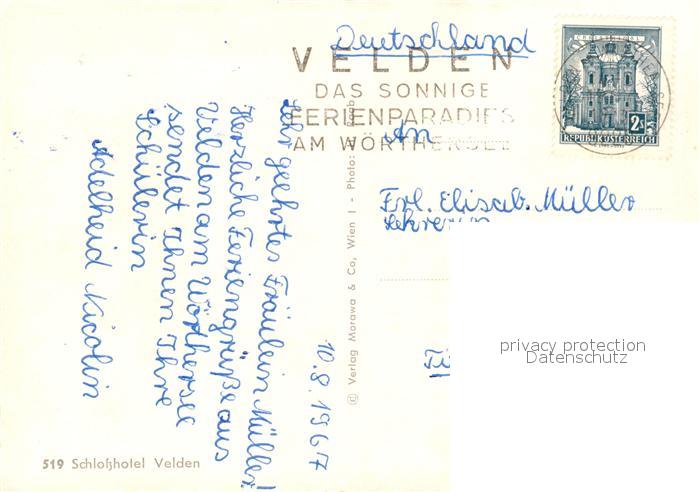 Deutschland
VELDEN
DAS SONNIGE
FERIENPARADIES
AM WÖRTHERSEE
2S
REPUBLIK ÖSTERREICH
An
Frl. Elisab. Müller
Lehrerin
privacy protection
Datenschutz
10.8.1967
Sehr geehrtes Fräulein Müller!
Herzliche Feriengrüße aus
Velden am Wörthersee
sendet Ihnen Ihre
Schülerin
Adelheid Nicolin
© Verlag Morawa & Co, Wien I - Photo:
519 Schloßhotel Velden